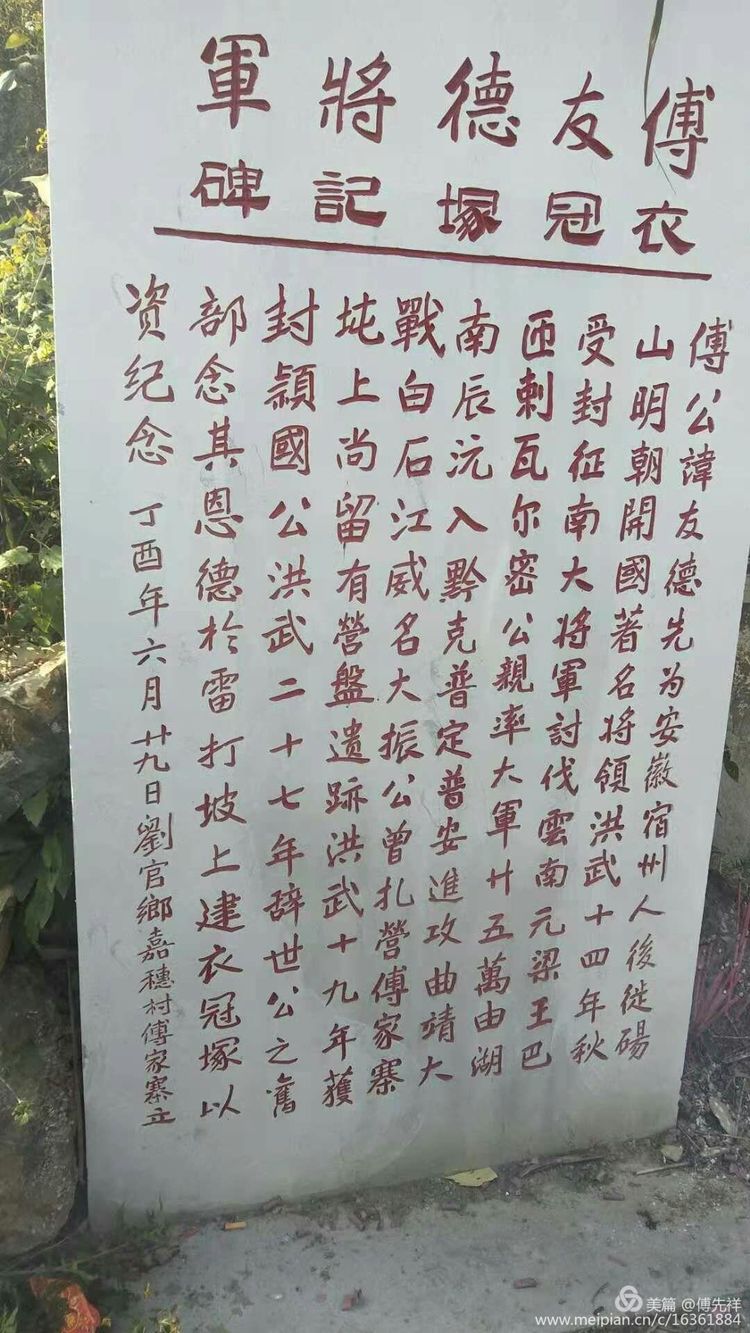 傅友德將軍
衣冠塚記碑
傅公諱友德先为安徽宿州人後徙碭
山明朝開國著名将領洪武十四年秋
受封征南大将軍討伐雲南元梁王巴
匝剌瓦尔密公親率大軍廿五萬由湖
南辰沅入黔克普定普安進攻曲靖大
戰白石江威名大振公曾扎營傅家寨
坉上尚留有營盤遺跡洪武十九年獲
封頴國公洪武二十七年辞世公之舊
部念其恩德於雷打坡上建衣冠塚以
资纪念 丁酉年六月廿九日劉官鄉嘉穗村傅家寨立
美篇 @傅先祥
www.meipian.cn/c/16361884